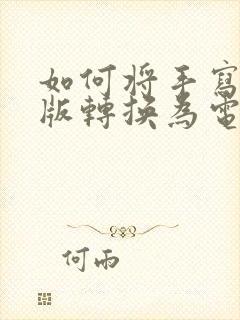 如何将手寫
版轉換為電
何雨